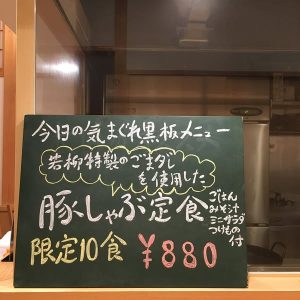 今日の気まぐれ黒板メニュー
若柳特製のごまダレ
を使用した
豚しゃぶ定食
ごはん
みそ汁
ミニサラダ
つけもの
付
限定10食 ¥880